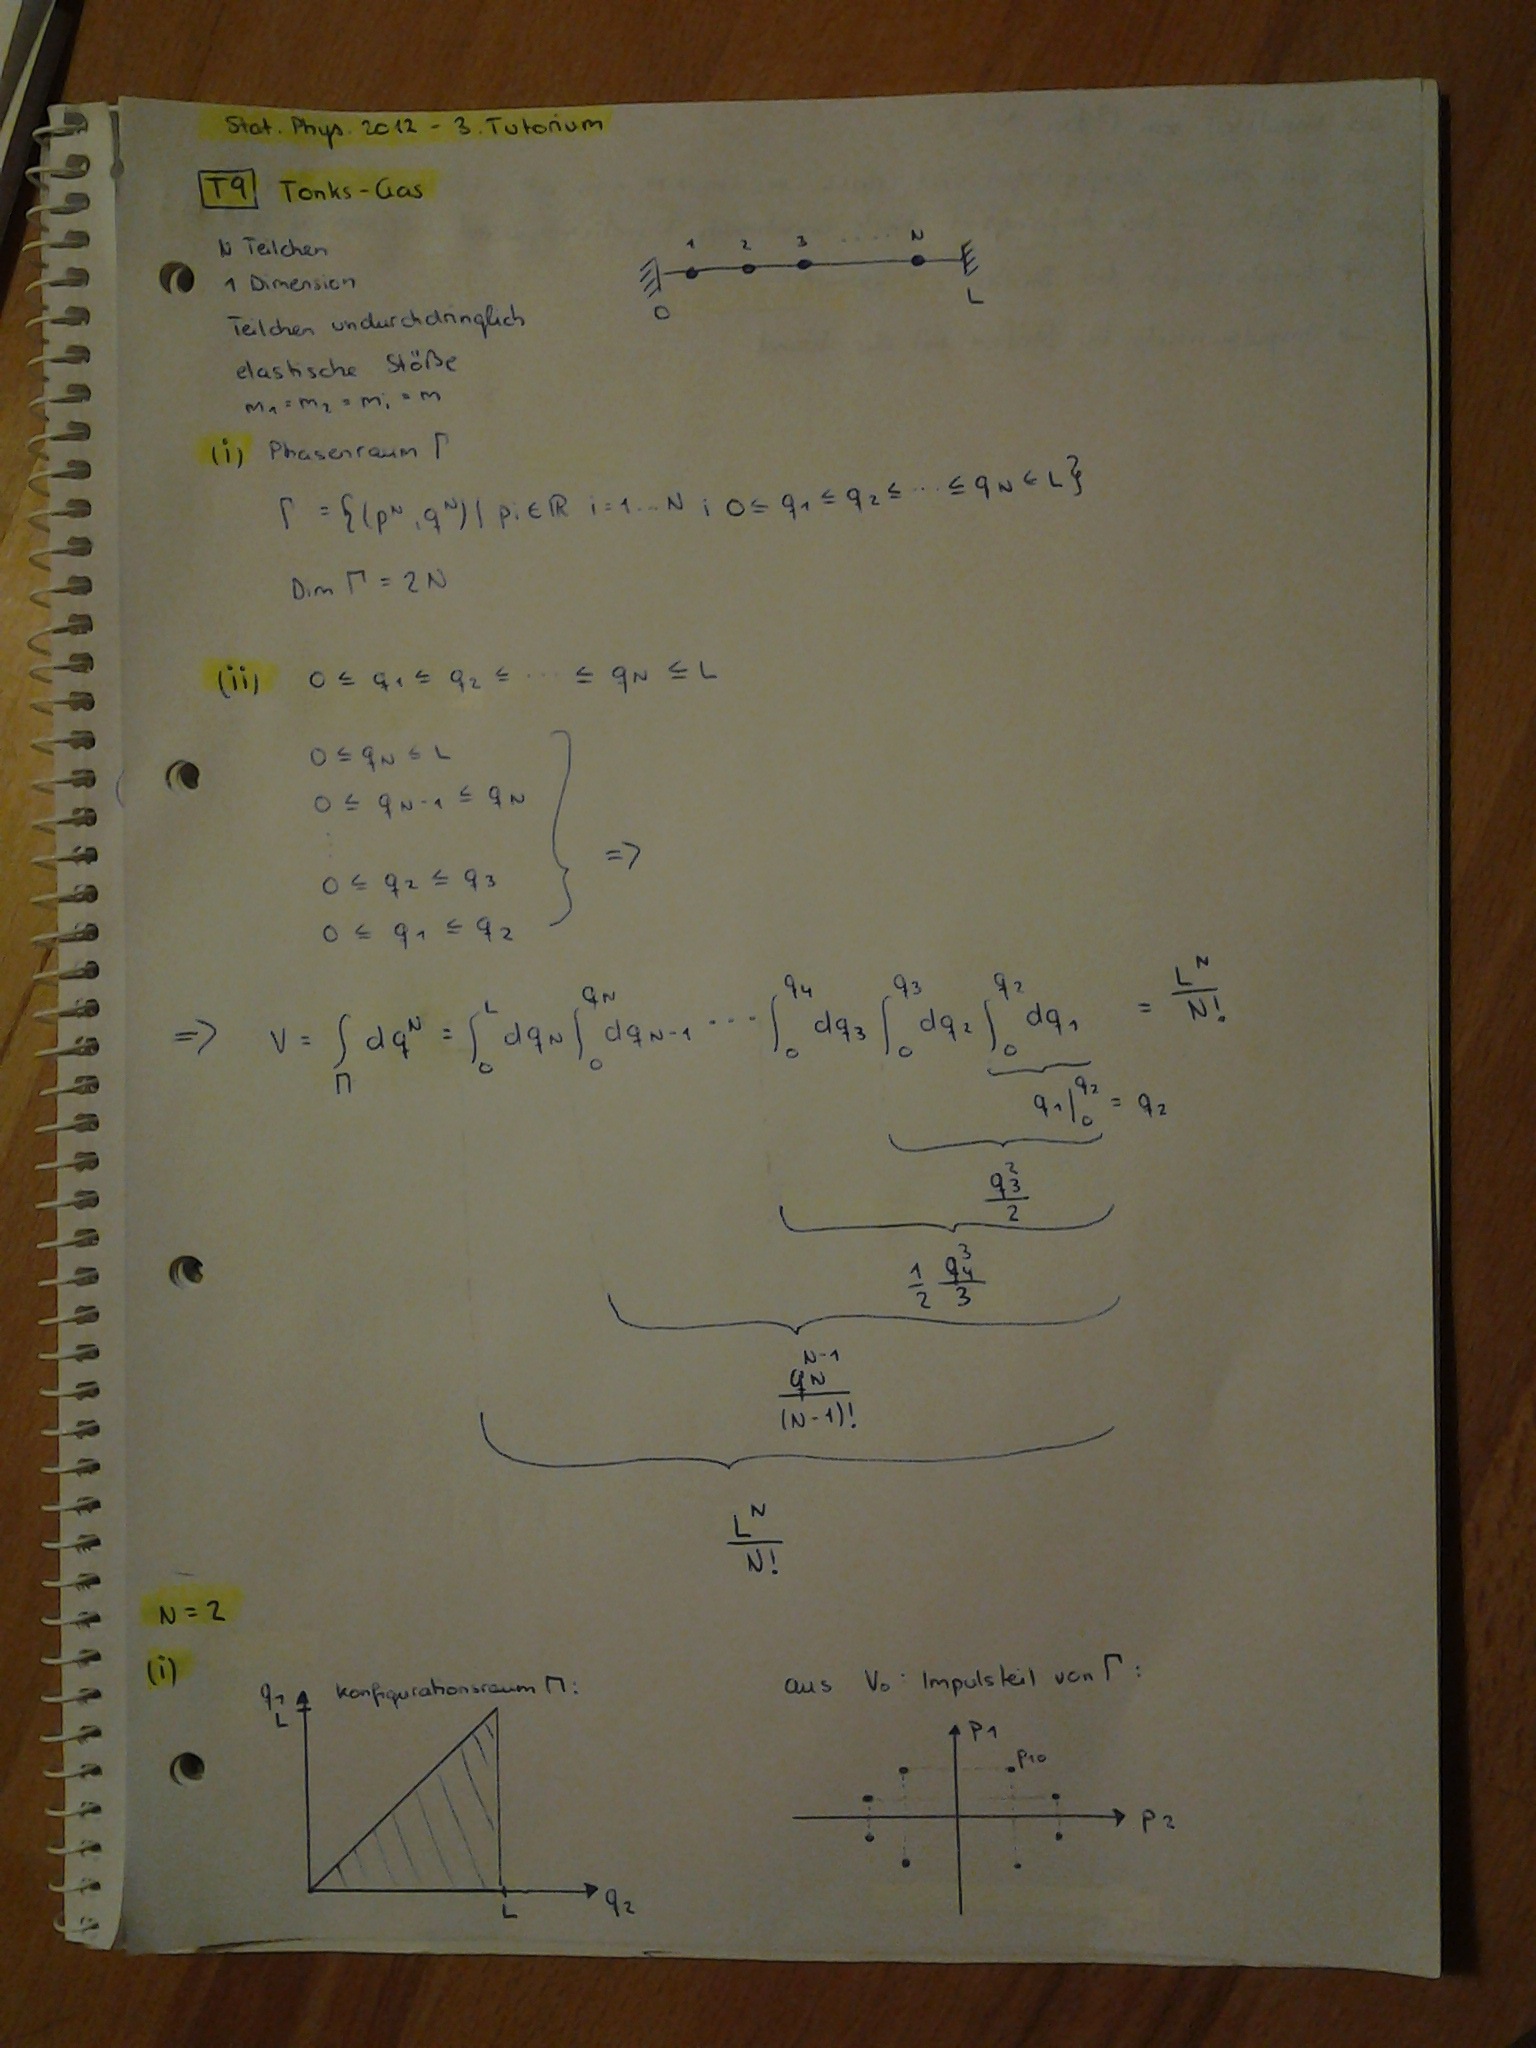 Stat. Phys. 2012 - 3. Tutorium
T9 Tonks-Gas
N Teilchen
1 Dimension
Teilchen undurchdringlich
elastische Stöße
m₁ = m₂ = mᵢ = m
1 2 3 ..... N
O L
(i) Phasenraum Γ
Γ = {(p^N, q^N) | pᵢ ∈ ℝ i = 1...N ; 0 ≤ q₁ ≤ q₂ ≤ ... ≤ q_N ≤ L}
Dim Γ = 2N
(ii) 0 ≤ q₁ ≤ q₂ ≤ ... ≤ q_N ≤ L
0 ≤ q_N ≤ L
0 ≤ q_{N-1} ≤ q_N
⋮
0 ≤ q₂ ≤ q₃
0 ≤ q₁ ≤ q₂
} =>
=> V = ∫_Π dq^N = ∫₀^L dq_N ∫₀^{q_N} dq_{N-1} ... ∫₀^{q₄} dq₃ ∫₀^{q₃} dq₂ ∫₀^{q₂} dq₁ = L^N/N!
q₁|₀^{q₂} = q₂
q₃²/2
1/2 q₄³/3
q_N^{N-1}/(N-1)!
L^N/N!
N = 2
(i)
Konfigurationsraum Π:
q₁
L
L
q₂
aus V₀: Impulsteil von Γ:
p₁
p₁₀
p₂